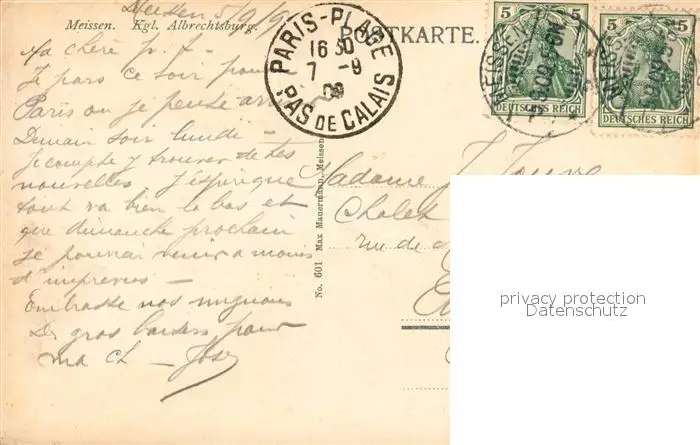 Meissen 5/9/9
Meissen. Kgl. Albrechtsburg.
POSTKARTE.
PARIS-PLAGE
16 30
7 - 9
09
PAS DE CALAIS
5 5
DEUTSCHES REICH
MEISSEN
5 5
DEUTSCHES REICH
MEISSEN
Ma chère
Je pars ce soir pour
Paris ou je pense
Demain soir lundi -
Je compte y trouver de tes
nouvelles J'espère que
tout va bien la bas et
que dimanche prochain
je pourrai venir a moins
d'imprévus -
Embrasse nos mignons
De gros baisers pour
ma Ch -
No. 601 Max Mauermann, Meissen
Madame J.
Chalet
rue de
privacy protection
Datenschutz